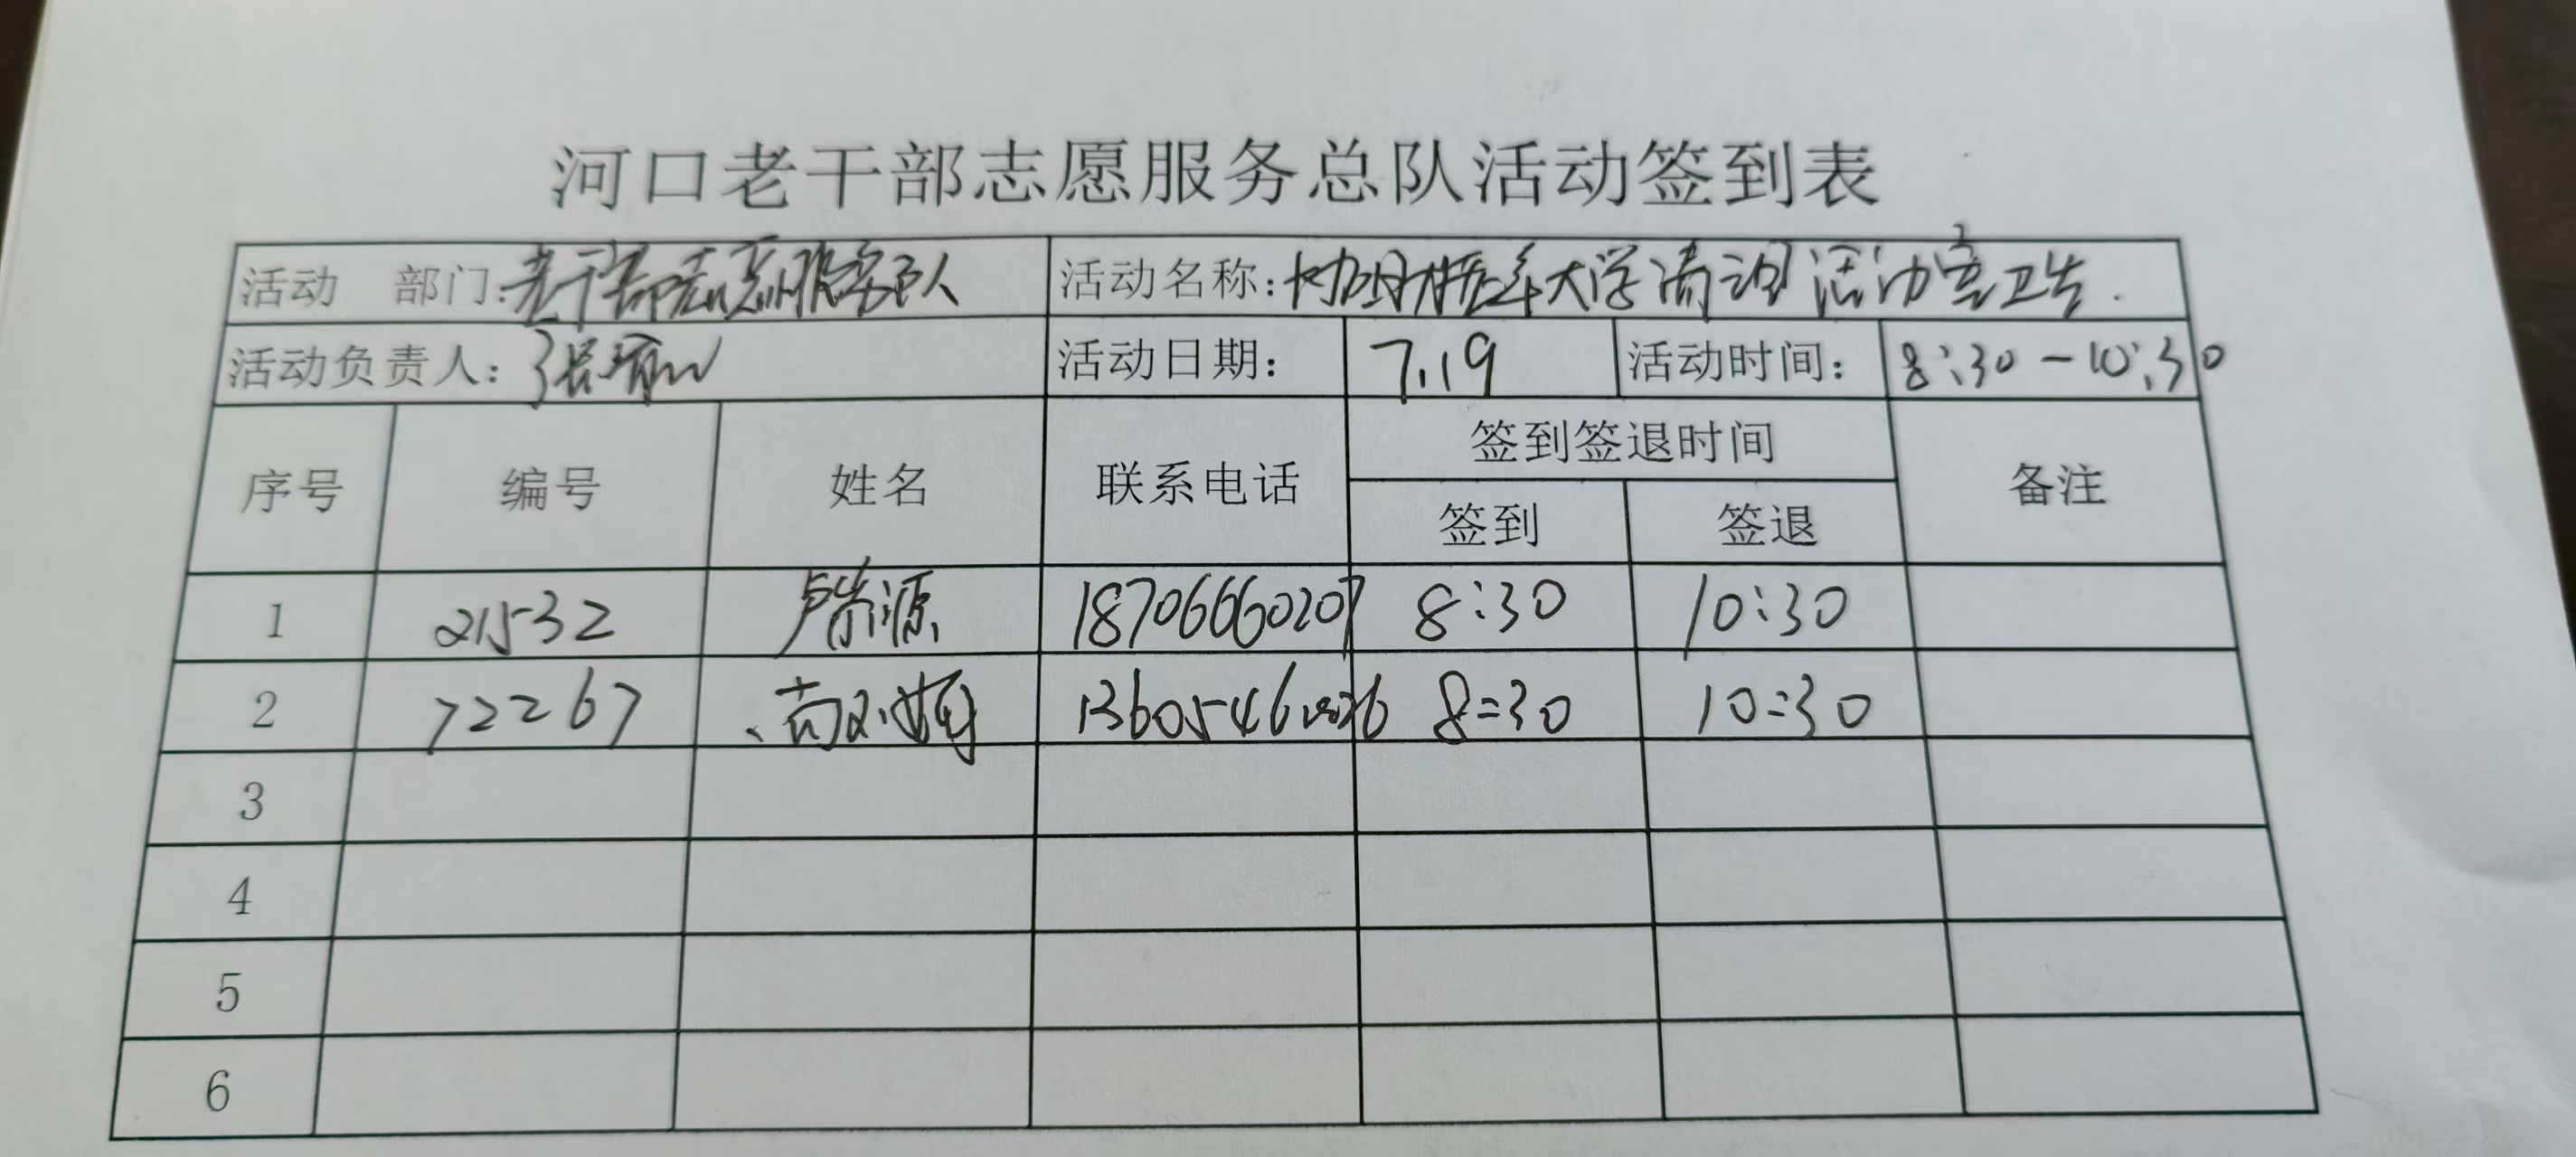 河口老干部志愿服务总队活动签到表
活动 部门:老干部志愿服务队 活动名称:协助老年大学清理活动室卫生.
活动负责人: 张 活动日期: 7.19 活动时间: 8:30-10:30
序号 编号 姓名 联系电话 签到签退时间 备注
签到 签退
1 21532 卢崇源 18706660207 8:30 10:30
2 72267 8:30 10:30
3
4
5
6